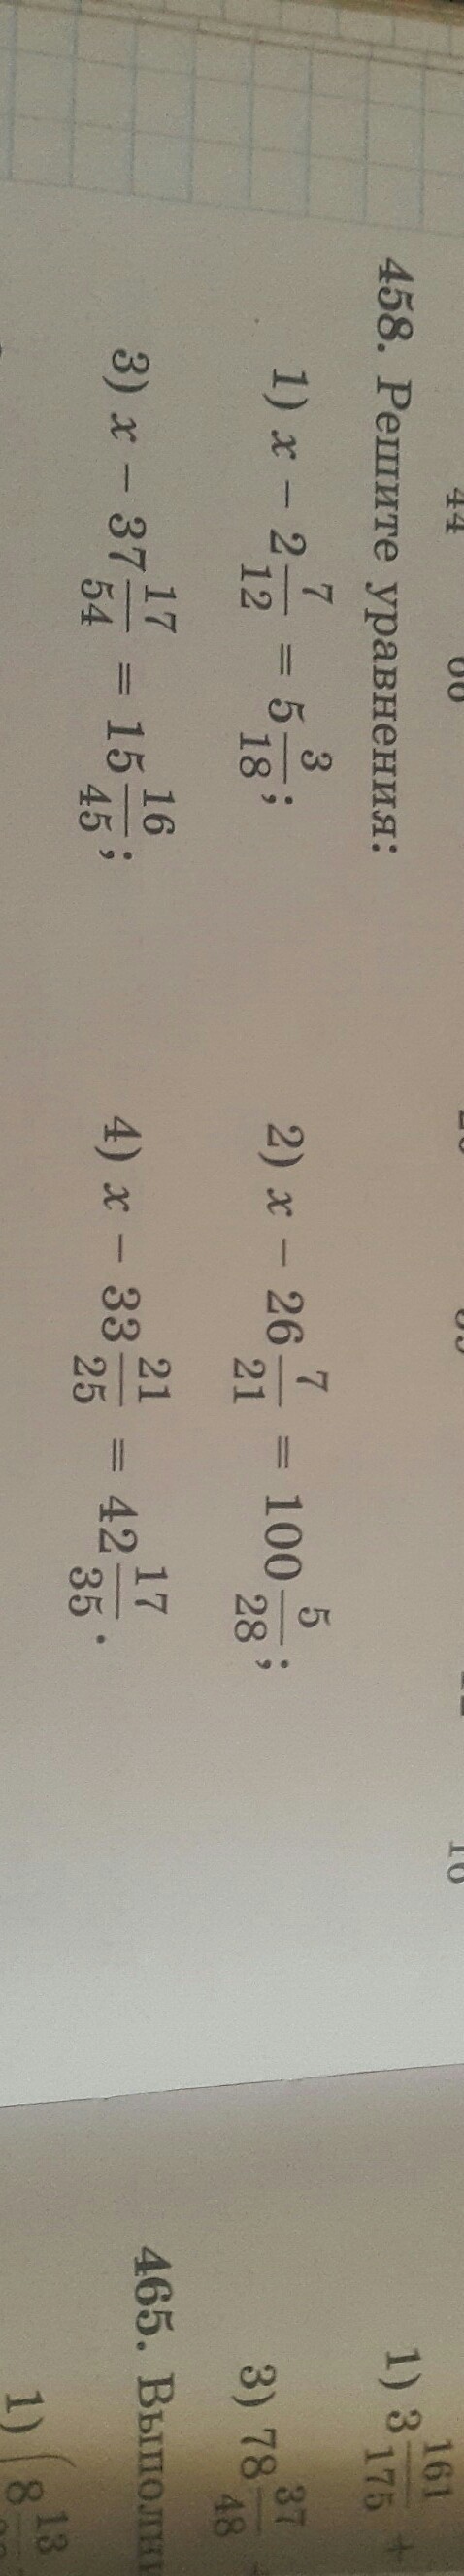 44 66
458. Решите уравнения:
1) x − 2 7/12 = 5 3/18; 2) x − 26 7/21 = 100 5/28;
3) x − 37 17/54 = 15 16/45; 4) x − 33 21/25 = 42 17/35.
1) 3 161/175 +
3) 78 37/48
465.
1) (8 13